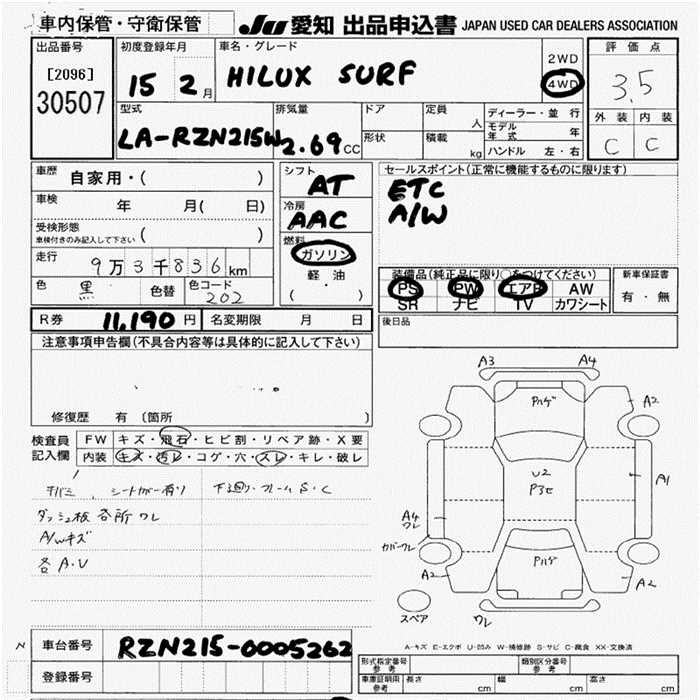 車内保管・守衛保管 JU 愛知 出品申込書 JAPAN USED CAR DEALERS ASSOCIATION
出品番号 [2096] 30507
初度登録年月 15 2月
車名・グレード HILUX SURF
2WD
4WD
評価点 3.5
外装 内装
C C
型式 LA-RZN215W
排気量 2.69cc
ドア
形状
定員 人
積載 kg
ディーラー・並行
モデル年式 年
ハンドル 左・右
車歴 自家用・( )
車検 年 月( 日)
受検形態
車検付きのみ記入して下さい ( )
走行 9万3千836km
色 黒 色替 色コード 202
シフト AT
冷房 AAC
燃料 ガソリン
軽・油
( )
セールスポイント(正常に機能するものに限ります)
ETC
A/W
装備品(純正品に限り○をつけてください)
PS PW エアB AW
SR ナビ TV カワシート
新車保証書
有・無
R券 11,190円 名変期限 月 日
後日品
注意事項申告欄(不具合内容等は具体的に記入して下さい)
修復歴 有 〔箇所 〕
検査員記入欄
FW キズ・飛石・ヒビ割・リペア跡・X要
内装 キズ・汚レ・コゲ・穴・スレ・キレ・破レ
シートカバー有り 下廻り・フレーム S・C
ダッシュ板 各所 ワレ
A/Wキズ
各 A・U
A3 A4
A2
A1
U2
A4
ワレ
カバーワレ
A2 A2
スペア ワレ
A-キズ E-エクボ U-凹み W-補修跡 S-サビ C-腐食 XX-交換済
N 車台番号 RZN215-0005262
登録番号
形式指定番号 参考 類別区分番号 参考
車庫証明用 参考 長さ cm 幅 cm 高さ cm